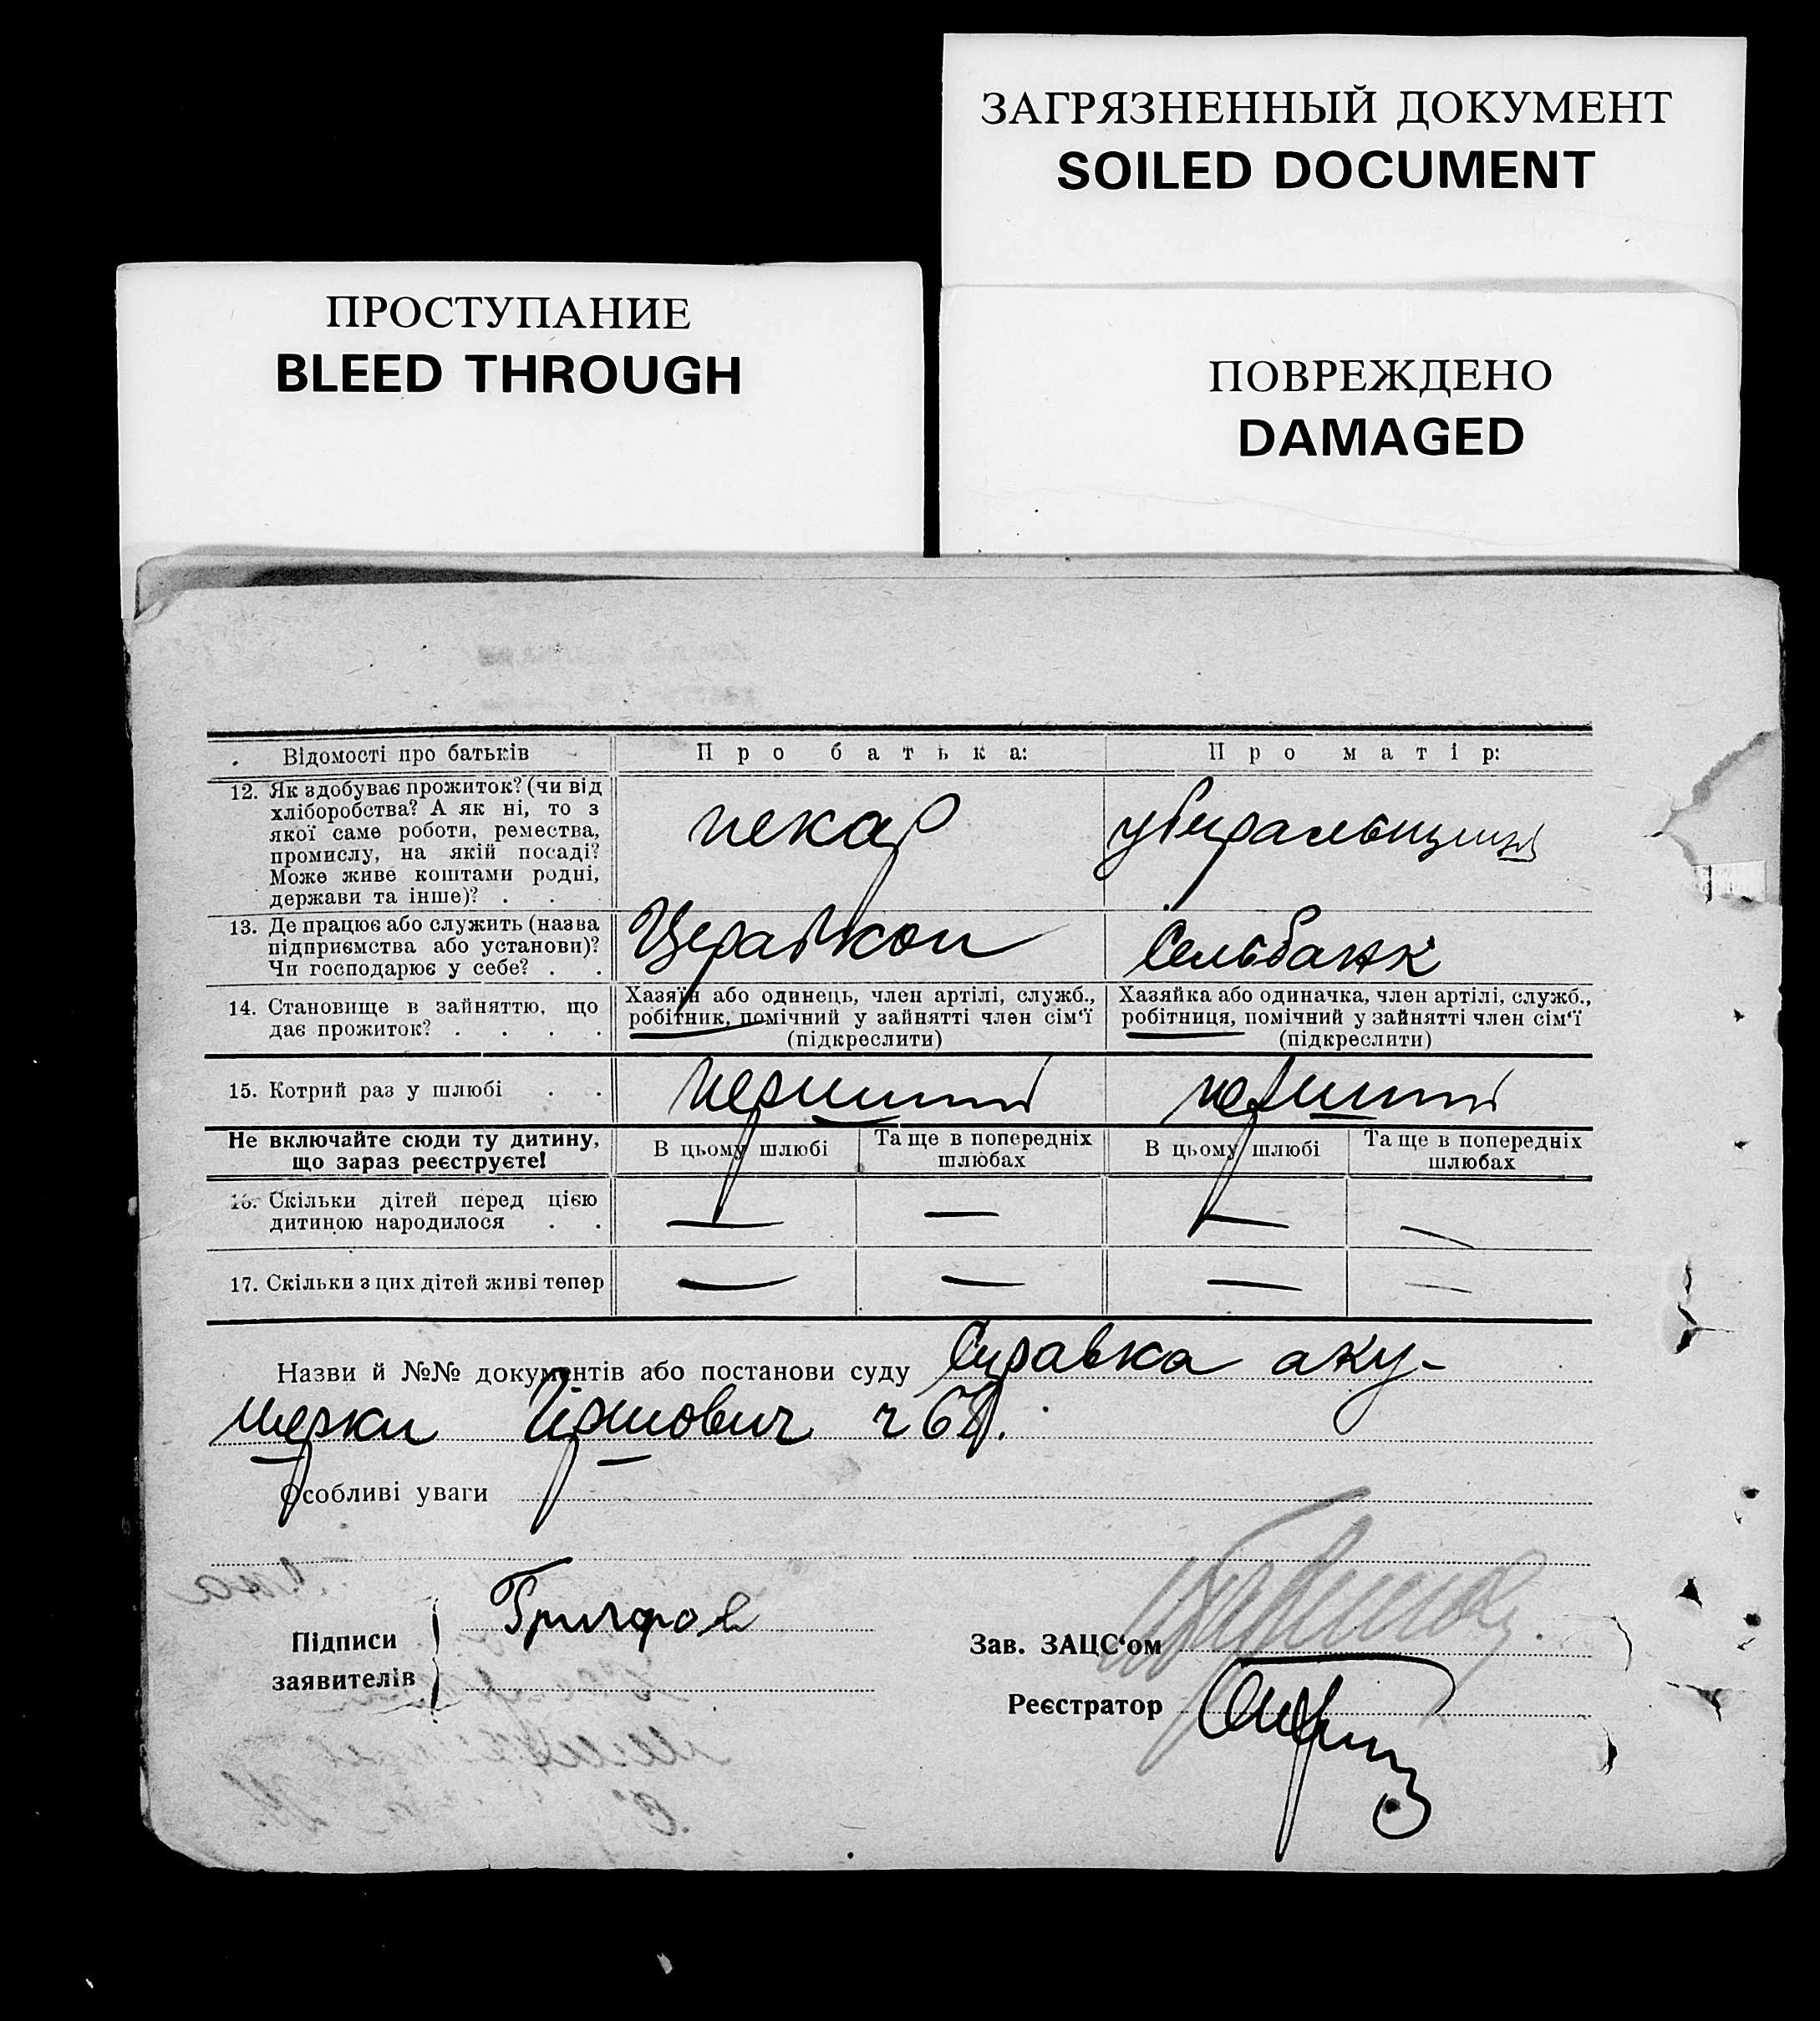 ЗАГРЯЗНЕННЫЙ ДОКУМЕНТ
SOILED DOCUMENT
ПРОСТУПАНИЕ
BLEED THROUGH
ПОВРЕЖДЕНО
DAMAGED
Відомості про батьків
Про батька:
Про матір:
12. Як здобуває прожиток? (чи від
хліборобства? А як ні, то з
якої саме роботи, ремества,
промислу, на якій посаді?
Може живе коштами родні,
держави та інше)? . .
пекар
убиральщиця
13. Де працює або служить (назва
підприємства або установи)?
Чи господарює у себе? . .
Церабкоп
Сельбанк
14. Становище в зайняттю, що
дає прожиток? . . . .
Хазяїн або одинець, член артілі, служб.,
робітник, помічний у зайнятті член сім'ї
(підкреслити)
Хазяйка або одиначка, член артілі, служб.,
робітниця, помічний у зайнятті член сім'ї
(підкреслити)
15. Котрий раз у шлюбі . .
перший
перший
Не включайте сюди ту дитину,
що зараз реєструєте!
В цьому шлюбі
Та ще в попередніх
шлюбах
В цьому шлюбі
Та ще в попередніх
шлюбах
16. Скільки дітей перед цією
дитиною народилося . .
— — — —
17. Скільки з цих дітей живі тепер
— — — —
Назви й №№ документів або постанови суду Справка аку-
шерки Гіршович ч
Особливі уваги
Підписи
заявителів
Зав. ЗАЦС'ом
Реєстратор